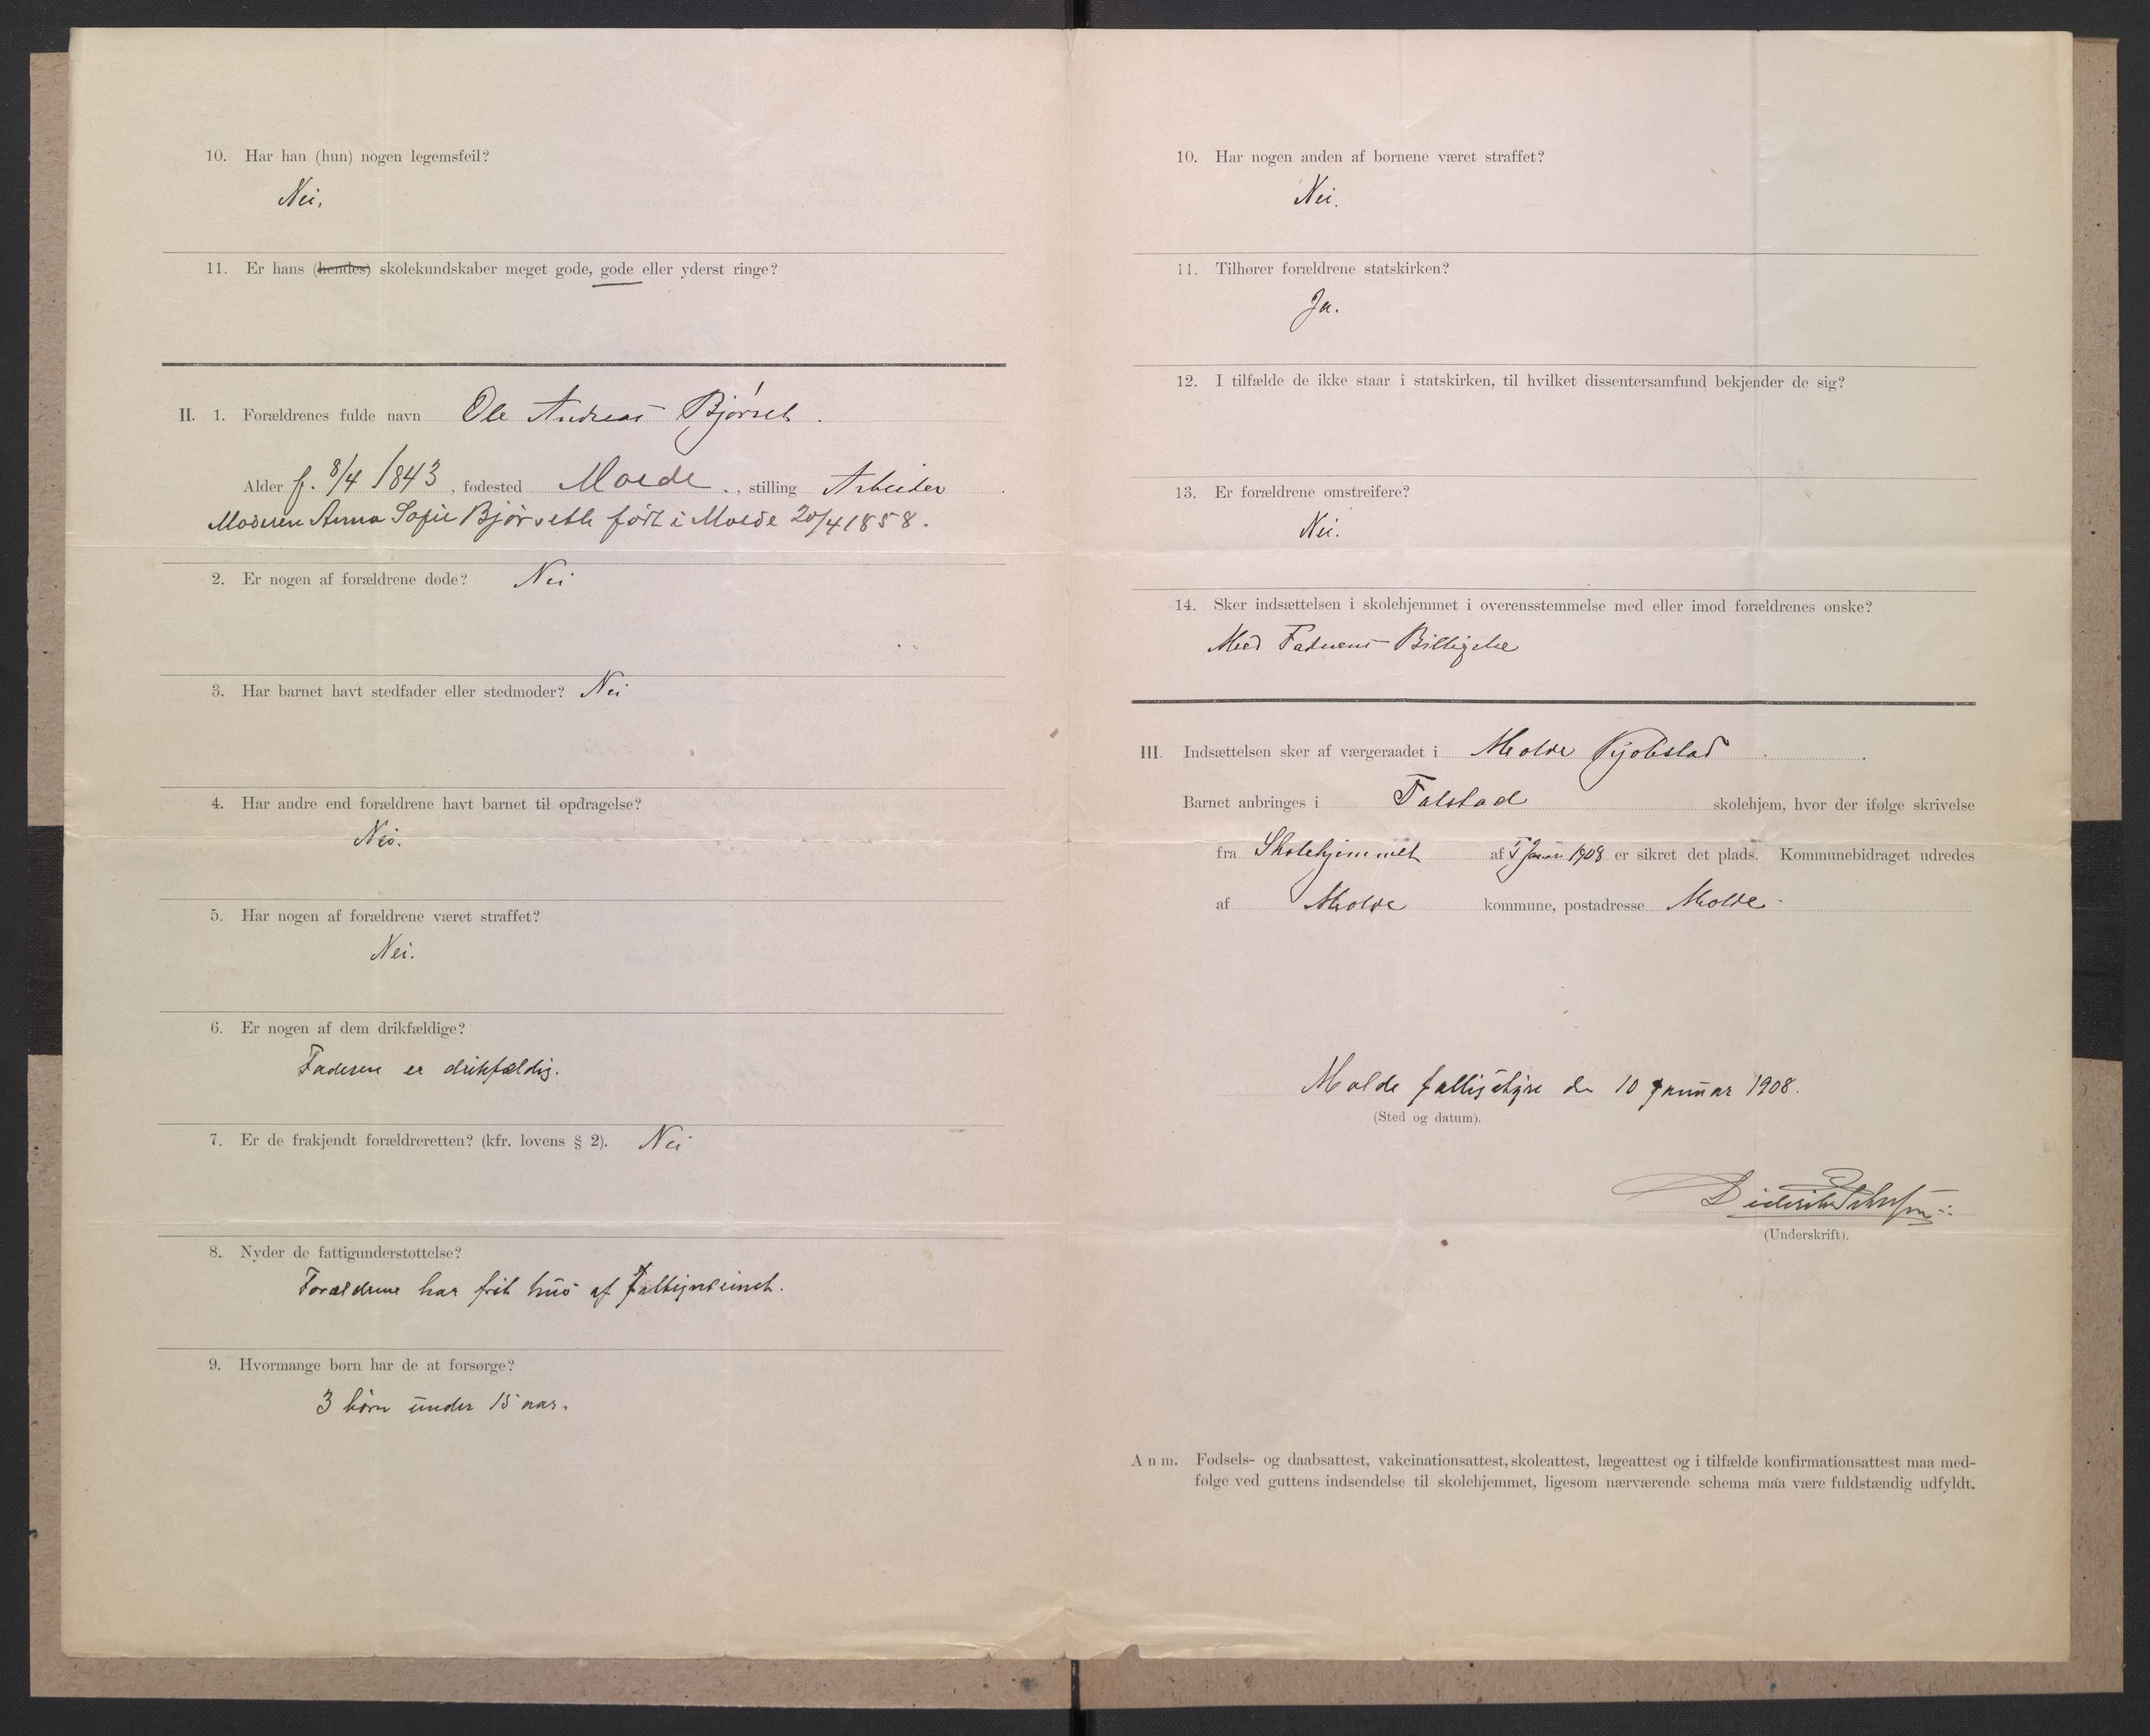 10. Har han (hun) nogen legemsfeil?
Nei.
11. Er hans (hendes) skolekundskaber meget gode, gode eller yderst ringe?
II. 1. Forældrenes fulde navn Ole Andreas Bjørset.
Alder f. 8/4 1843, fødested Molde., stilling Arbeider.
Moderen Anna Sofie Bjørseth født i Molde 20/4 1858.
2. Er nogen af forældrene døde? Nei
3. Har barnet havt stedfader eller stedmoder? Nei
4. Har andre end forældrene havt barnet til opdragelse?
Nei.
5. Har nogen af forældrene været straffet?
Nei.
6. Er nogen af dem drikfældige?
Faderen er drikfældig.
7. Er de frakjendt forældreretten? (kfr. lovens § 2). Nei
8. Nyder de fattigunderstøttelse?
Forældrene har frit hus af
9. Hvormange børn har de at forsørge?
3 børn under 15 aar.
10. Har nogen anden af børnene været straffet?
Nei.
11. Tilhører forældrene statskirken?
Ja.
12. I tilfælde de ikke staar i statskirken, til hvilket dissentersamfund bekjender de sig?
13. Er forældrene omstreifere?
Nei.
14. Sker indsættelsen i skolehjemmet i overensstemmelse med eller imod forældrenes ønske?
Med Faderens Billigelse
III. Indsættelsen sker af værgeraadet i Molde Kjøbstad.
Barnet anbringes i Falstad skolehjem, hvor der ifølge skrivelse
fra Skolehjemmet af Januar 1908 er sikret det plads. Kommunebidraget udredes
af Molde kommune, postadresse Molde.
Molde fattigstyre den 10 Januar 1908.
(Sted og datum).
Diderik
(Underskrift).
Anm. Fødsels- og daabsattest, vakcinationsattest, skoleattest, lægeattest og i tilfælde konfirmationsattest maa med-
følge ved guttens indsendelse til skolehjemmet, ligesom nærværende schema maa være fuldstændig udfyldt.